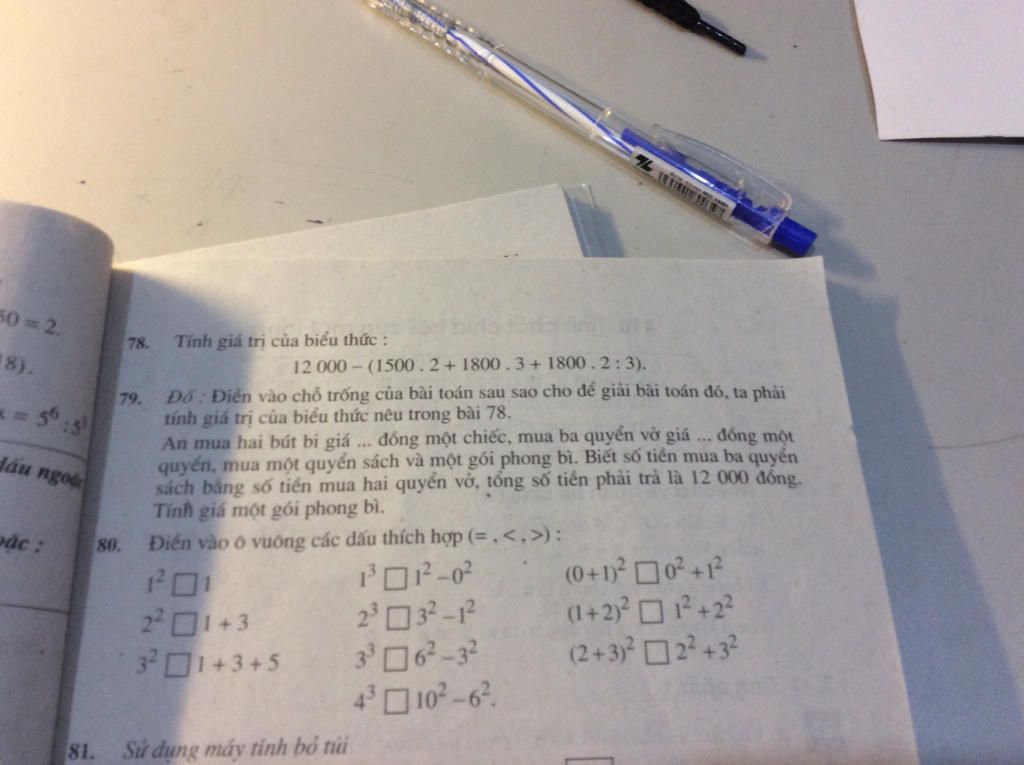 50 = 2.
18).
x = 5⁶ : 5³
dấu ngoặc
oặc :
78. Tính giá trị của biểu thức :
12 000 – (1500 . 2 + 1800 . 3 + 1800 . 2 : 3).
79. Đố : Điền vào chỗ trống của bài toán sau sao cho để giải bài toán đó, ta phải
tính giá trị của biểu thức nêu trong bài 78.
An mua hai bút bi giá ... đồng một chiếc, mua ba quyển vở giá ... đồng một
quyển, mua một quyển sách và một gói phong bì. Biết số tiền mua ba quyển
sách bằng số tiền mua hai quyển vở, tổng số tiền phải trả là 12 000 đồng.
Tính giá một gói phong bì.
80. Điền vào ô vuông các dấu thích hợp (= , < , >) :
1² □ 1 1³ □ 1² – 0² (0+1)² □ 0² + 1²
2² □ 1 + 3 2³ □ 3² – 1² (1+2)² □ 1² + 2²
3² □ 1 + 3 + 5 3³ □ 6² – 3² (2+3)² □ 2² + 3²
4³ □ 10² – 6².
81. Sử dụng máy tính bỏ túi